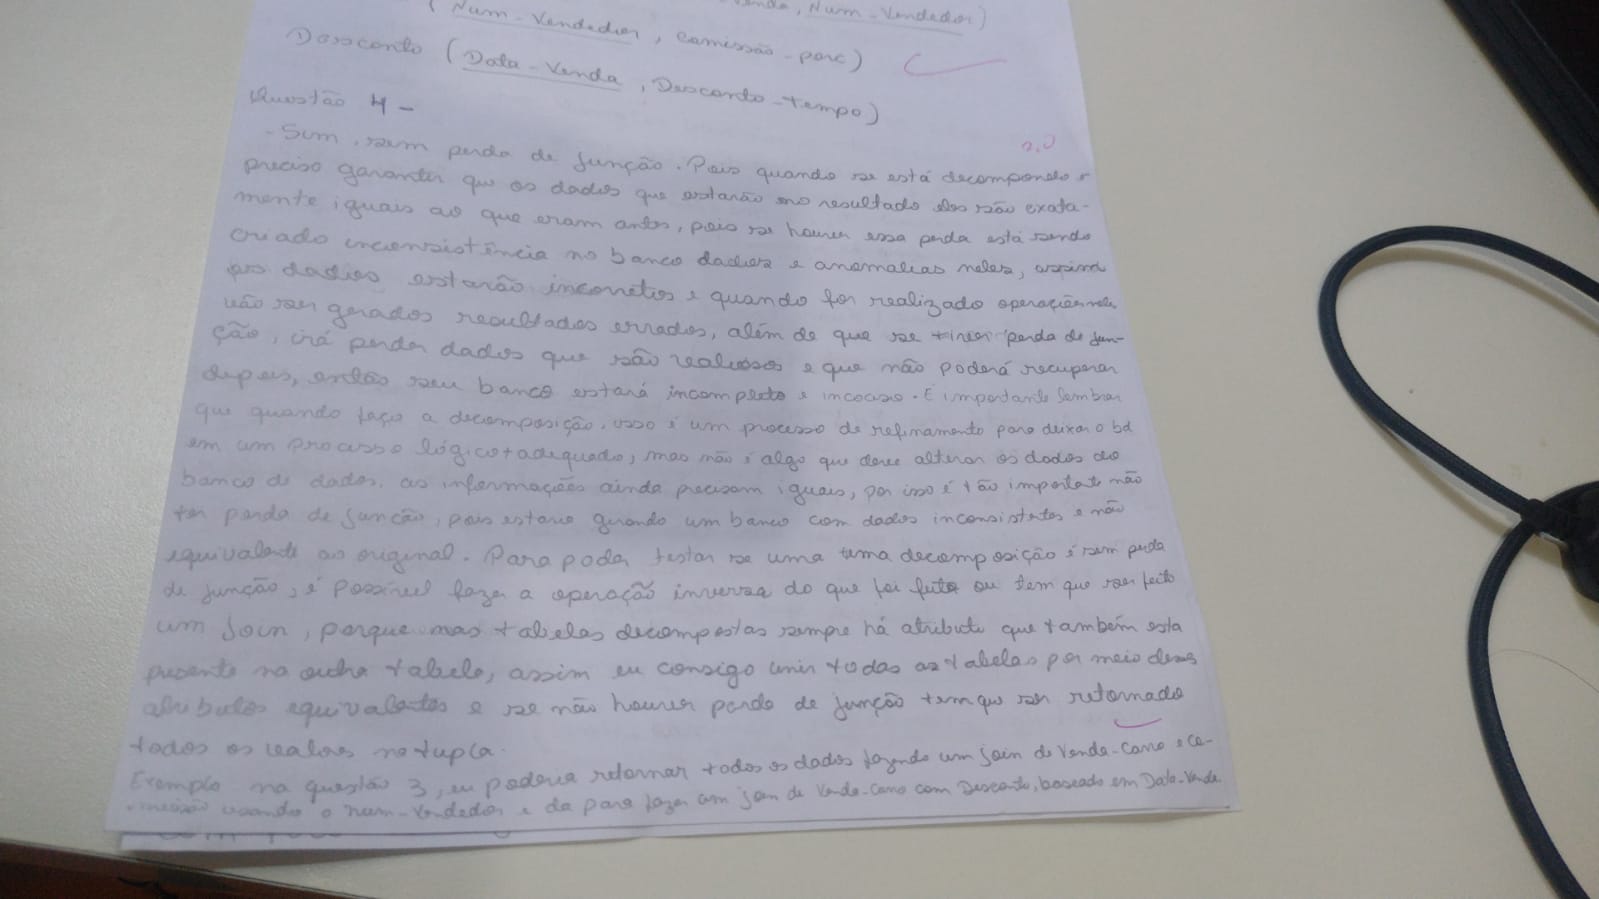 Venda, Num-Vendedor)
(Num-Vendedor, comissão-porc)
Desconto (Data-Venda, Desconto-tempo)
Questão 4 -
2,0
- Sim, sem perda de junção. Pois quando se está decompondo é
preciso garantir que os dados que estarão no resultado eles são exata-
mente iguais ao que eram antes, pois se houver essa perda está sendo
criado inconsistência no banco dados e anomalias neles, assim
os dados estarão incorretos e quando for realizado operações
vão ser gerados resultados errados, além de que se tiver perda de jun-
ção, irá perder dados que são valiosos e que não poderá recuperar
depois, então seu banco estará incompleto e incoeso. É importante lembrar
que quando faço a decomposição, isso é um processo de refinamento para deixar o bd
em um processo lógico + adequado, mas não é algo que deve alterar os dados do
banco de dados, as informações ainda precisam iguais, por isso é tão importante não
ter perda de junção, pois estaria gerando um banco com dados inconsistentes e não
equivalente ao original. Para poder testar se uma uma decomposição é sem perda
de junção, é possível fazer a operação inversa do que foi feito ou tem que ser feito
um Join, porque nas tabelas decompostas sempre há atributo que também esta
presente na outra tabela, assim eu consigo unir todas as tabelas por meio desses
atributos equivalentes e se não houver perda de junção tem que ser retornado
todos os valores na tupla.
Exemplo na questão 3, eu poderia retornar todos os dados fazendo um join de Venda-Carro e co-
missão usando o num-vendedor e da para fazer um join de Venda-Carro com Desconto, baseado em Data-Venda.